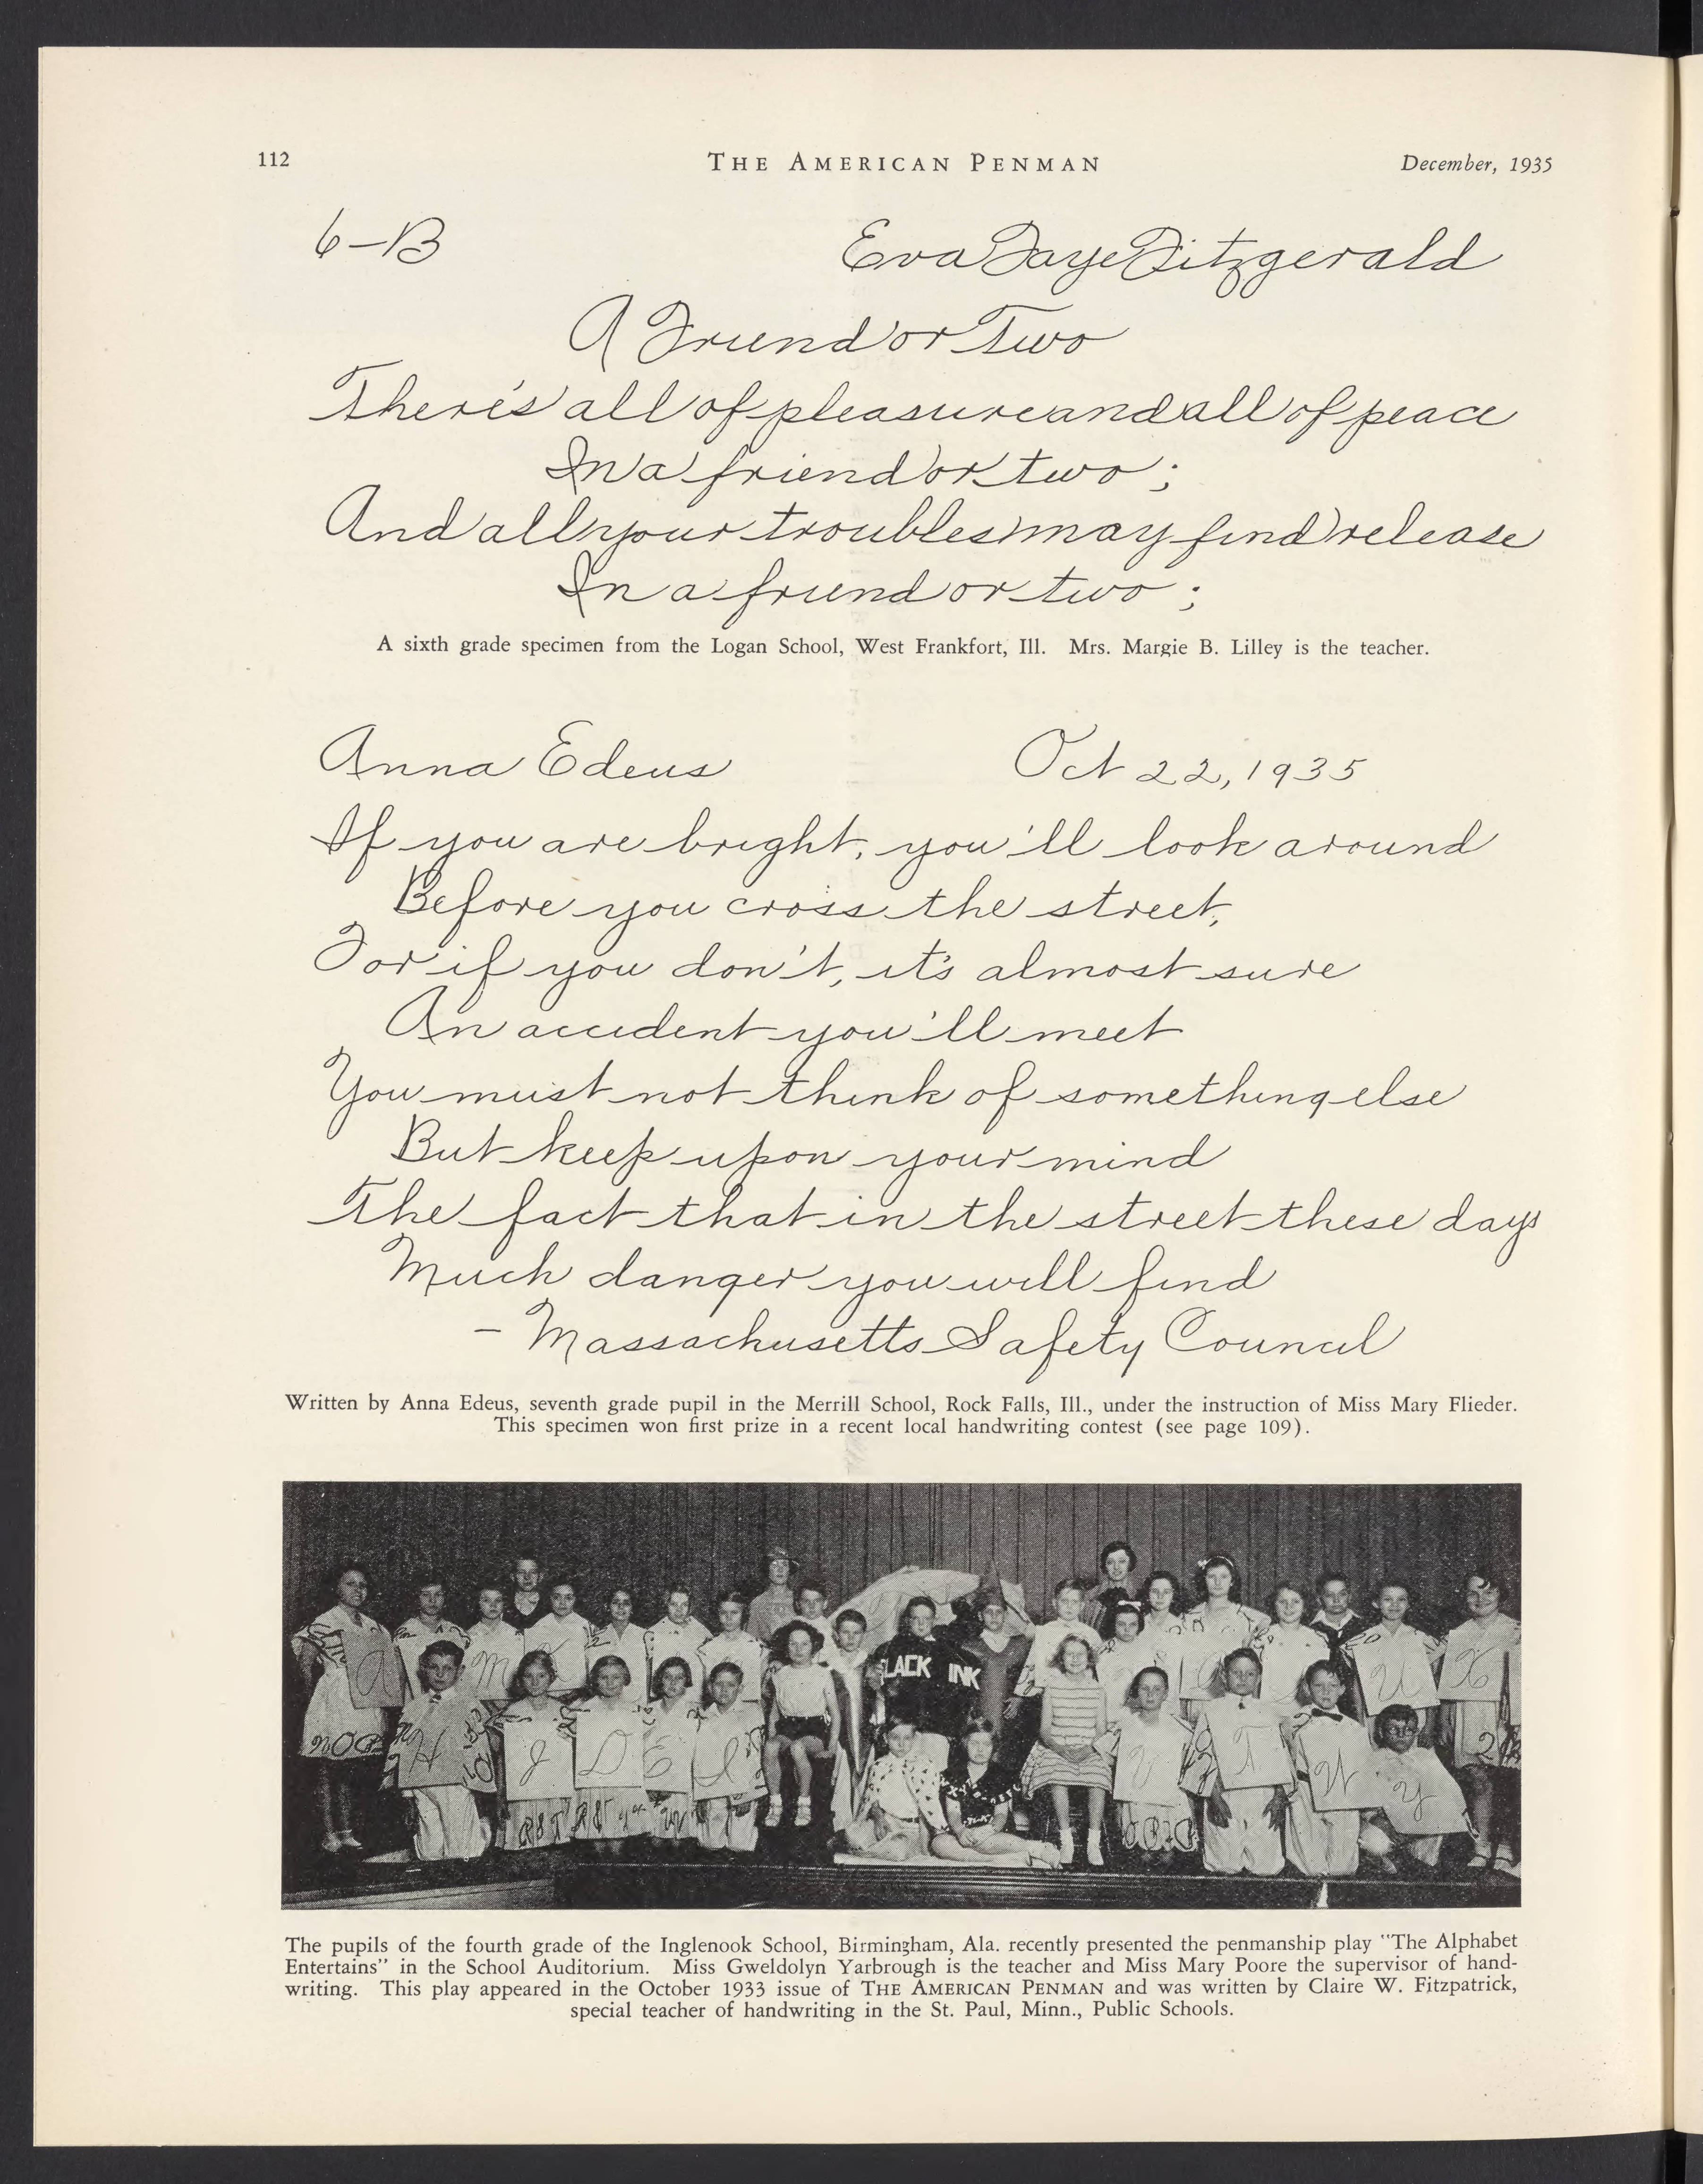 112 THE AMERICAN PENMAN December, 1935
6-B Eva Faye Fitzgerald
A Friend or Two
There's all of pleasure and all of peace
In a friend or two;
And all your troubles may find release
In a friend or two;
A sixth grade specimen from the Logan School, West Frankfort, Ill. Mrs. Margie B. Lilley is the teacher.
Anna Edeus Oct 22, 1935
If you are bright, you'll look around
Before you cross the street,
For if you don't, it's almost sure
An accident you'll meet
You must not think of something else
But keep upon your mind
The fact that in the street these days
Much danger you will find
- Massachusetts Safety Council
Written by Anna Edeus, seventh grade pupil in the Merrill School, Rock Falls, Ill., under the instruction of Miss Mary Flieder.
This specimen won first prize in a recent local handwriting contest (see page 109).
LACK INK
A M K U X
H J D E I V T W Y
The pupils of the fourth grade of the Inglenook School, Birmingham, Ala. recently presented the penmanship play "The Alphabet
Entertains" in the School Auditorium. Miss Gweldolyn Yarbrough is the teacher and Miss Mary Poore the supervisor of hand-
writing. This play appeared in the October 1933 issue of THE AMERICAN PENMAN and was written by Claire W. Fitzpatrick,
special teacher of handwriting in the St. Paul, Minn., Public Schools.